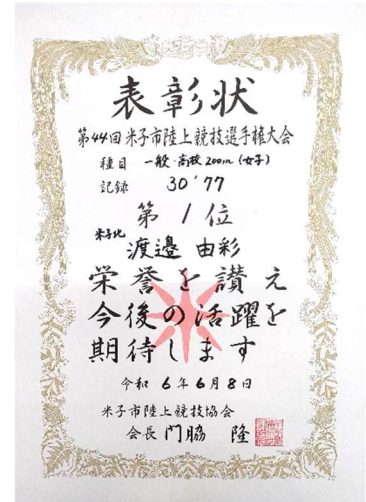 表彰状
第44回米子市陸上競技選手権大会
種目 一般・高校200m(女子)
記録 30'77
第1位
米子北 渡邉 由彩
栄誉を讃え
今後の活躍を
期待します
令和6年6月8日
米子市陸上競技協会
会長 門脇 隆